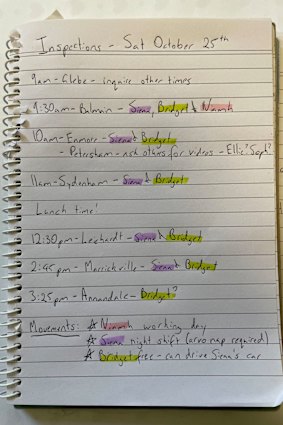 Inspections - Sat October 25th
9am - Glebe - inquire other times
9:30am - Balmain - Siena, Bridget & Niamh
10am - Enmore - Siena & Bridget
- Petersham - ask others for videos - Ellie? Soph?
11am - Sydenham - Siena & Bridget
Lunch time!
12:30pm - Leichardt - Siena & Bridget
2:45pm - Marrickville - Siena & Bridget
3:25pm - Annandale - Bridget?
Movements: * Niamh working day
* Siena night shift (arvo nap required)
* Bridget free - can drive Siena's car